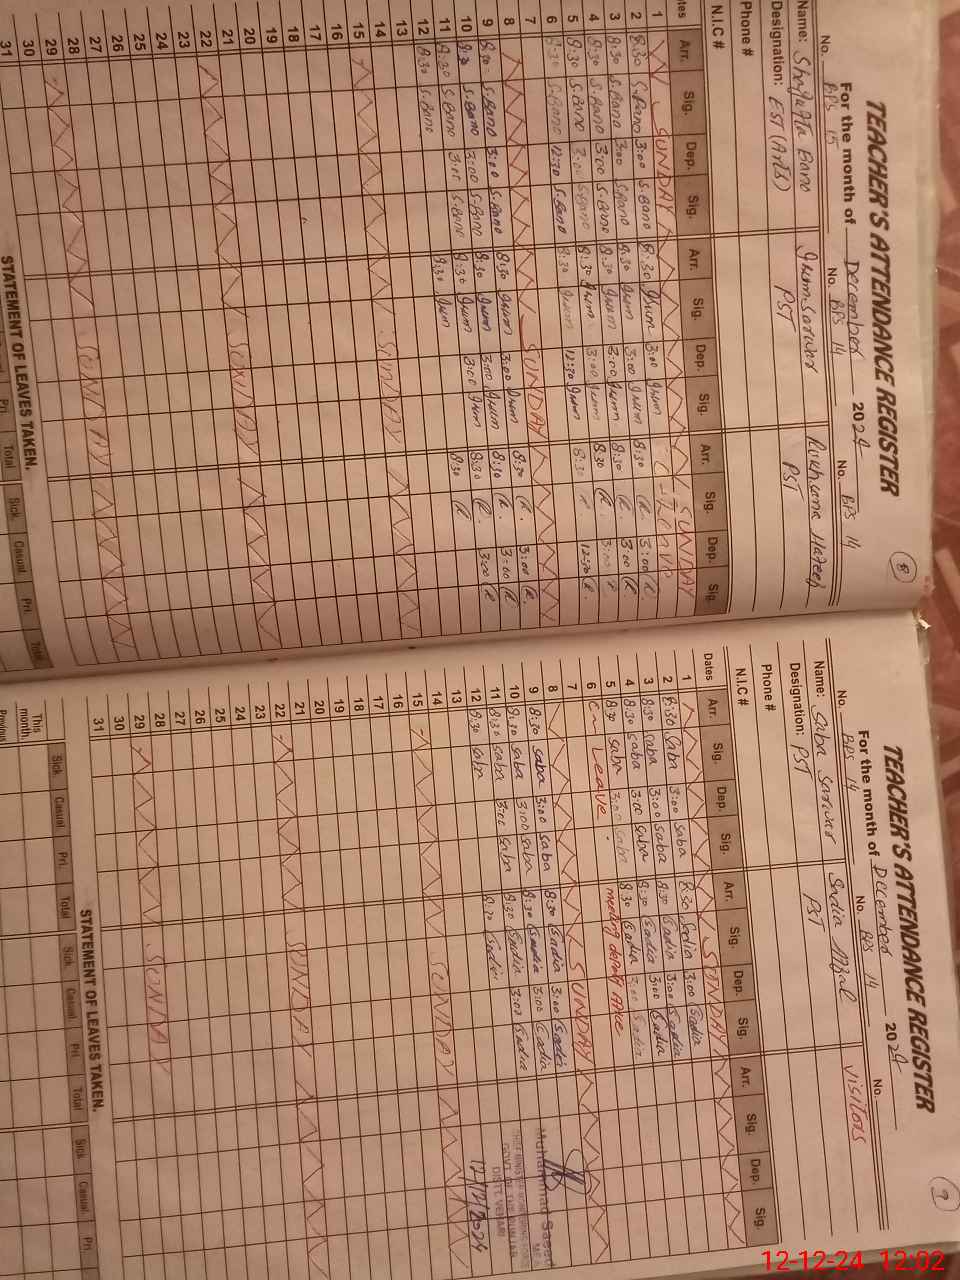 TEACHER'S ATTENDANCE REGISTER
8
For the month of December 2024
No. BPS 15 No. BPS 14 No. BPS 14
Name: Shagufta Bano
Designation: EST (Arts) PST PST
Phone #
N.I.C #
Arr. Sig. Dep. Sig. Arr. Sig. Dep. Sig. Arr. Sig. Dep. Sig.
1 SUNDAY SUNDAY
2 8:30 S.Bano 3:00 S.Bano 8:30 3:00 8:30 R. 3:00 R.
3 8:30 S.Bano 3:00 S.Bano 8:30 3:00 8:30 R. 3:00 R
4 8:30 S.Bano 3:00 S.Bano 8:30 3:00 8:30 R. 3:00
5 8:30 S.Bano 3:00 S.Bano 8:30 3:00 8:30 12:30 R.
6 8:30 S.Bano 12:30 S.Bano 8:30 12:30
7
8 SUNDAY
9 8:30 S.Bano 3:00 S.Bano 8:30 3:00 8:30 R. 3:00 R.
10 8:30 S.Bano 3:00 S.Bano 8:30 3:00 8:30 R. 3:00 R
11 8:30 S.Bano 3:00 S.Bano 8:30 3:00 8:30 R. 3:00 R
12 8:30 S.Bano 8:30 8:30 R
13
14
15 SUNDAY
16
17
18
19
20
21
22 SUNDAY
23
24
25
26
27
28
29 SUNDAY
30
31
STATEMENT OF LEAVES TAKEN.
Pri. Total Sick. Casual. Pri. Total
TEACHER'S ATTENDANCE REGISTER
9
For the month of December 2024
No. BPS 14 No. BPS 14 No.
Name: Saba Sarwar Sadia Afzal Visitors
Designation: PST PST
Phone #
N.I.C #
Dates Arr. Sig. Dep. Sig. Arr. Sig. Dep. Sig. Arr. Sig. Dep. Sig.
1 SUNDAY
2 8:30 Saba 3:00 Saba 8:30 Sadia 3:00 Sadia
3 8:30 Saba 3:00 Saba 8:30 Sadia 3:00 Sadia
4 8:30 Saba 3:00 Saba 8:30 Sadia 3:00 Sadia
5 8:30 Saba 3:00 Saba 8:30 Sadia 3:00 Sadia
6 on Leave.
7
8 SUNDAY
9 8:30 Saba 3:00 Saba 8:30 Sadia 3:00 Sadia
10 8:30 Saba 3:00 Saba 8:30 Sadia 3:00 Sadia
11 8:30 Saba 3:00 Saba 8:30 Sadia 3:00 Sadia
12 8:30 Saba 8:30 Sadia
13
14
15 SUNDAY
16
17
18
19
20
21
22 SUNDAY
23
24
25
26
27
28
29 SUNDAY
30
31
Muhammad Saeed
MEA
GOVT. OF THE PUNJAB
DISTT. VEHARI
12/12/2024
STATEMENT OF LEAVES TAKEN.
Sick. Casual. Pri. Total Sick. Casual. Pri. Total Sick. Casual. Pri.
This month.
Previous
12-12-24 12:02